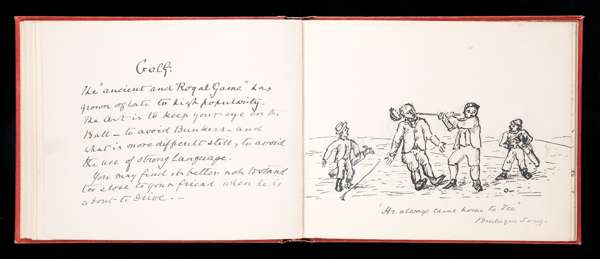 Golf.
The "ancient and Royal Game" has
grown of late to high popularity.
The Art is to keep your eye on the
Ball - to avoid Bunkers - and
what is more difficult still, to avoid
the use of strong language.
You may find it better not to stand
too close to your friend when he is
about to drive. -
"He always came home to Tee"
Song.